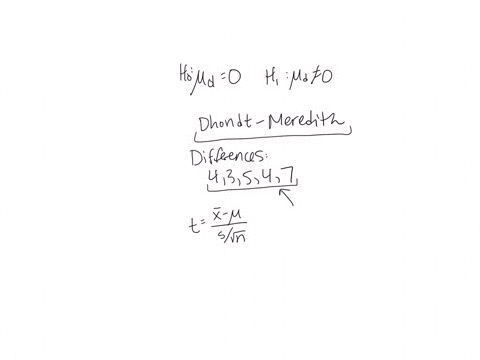 H₀: μd = 0  H₁: μd ≠ 0
Dhondt - Meredith
Differences:
4, 3, 5, 4, 7
t = (x̄ - μ) / (s/√n)